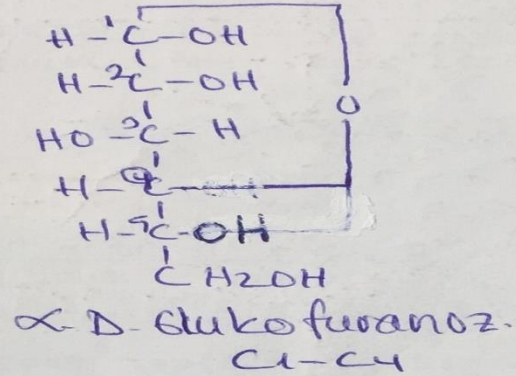 H-¹C-OH
H-²C-OH
O
HO-³C-H
H-⁴C
H-⁵C-OH
CH2OH
α-D-Glukofuranoz.
C1-C4